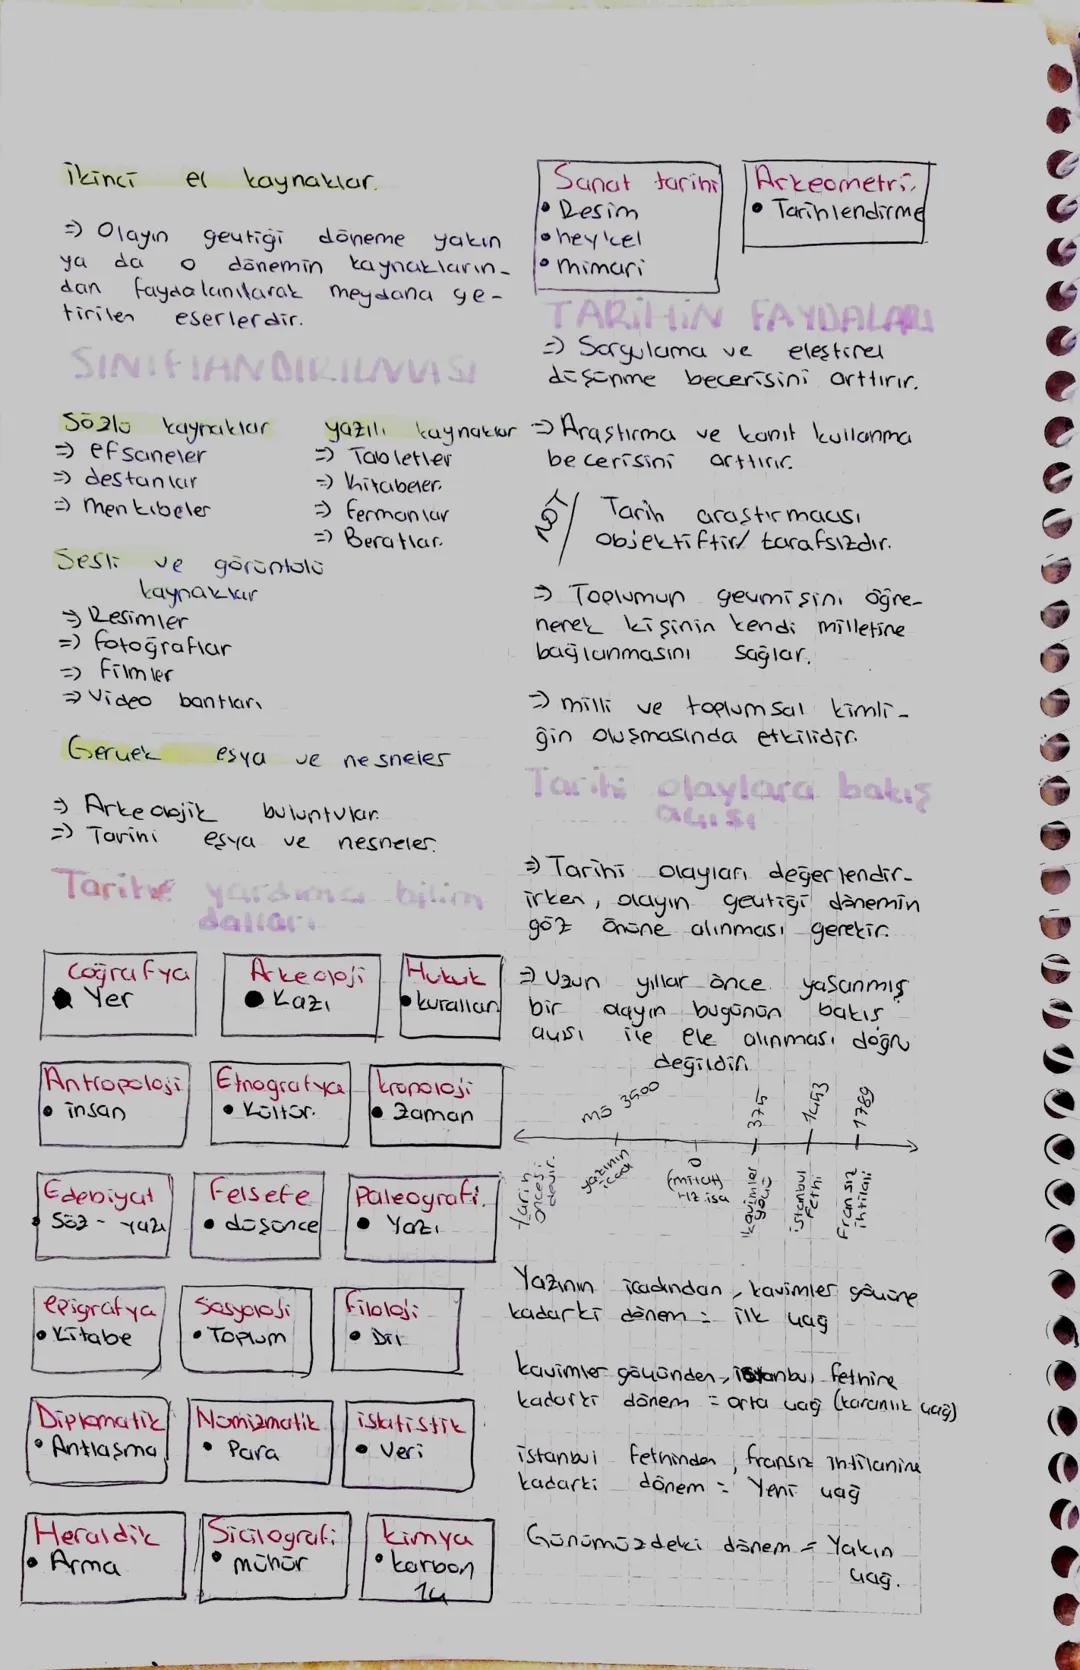 ikinci el kaynaklar.
=> Olayın geçtiği döneme yakın
ya da o dönemin kaynakların-
dan faydalanılarak meydana ge-
tirilen eserlerdir.
SINIFLANDIRILMASI
Sözlü kaynaklar
=> efsaneler
=> destanlar
=> menkıbeler
yazılı kaynaklar
=> Tabletler
=> Kitabeler.
=> fermanlar
=> Beratlar.
Sesli ve görüntülü
kaynaklar
=> Resimler
=> fotoğraflar
=> filmler
=> Video bantları
Gerçek eşya ve nesneler
=> Arkeolojik buluntular.
=> Tarihi eşya ve nesneler.
Tarihe yardımcı bilim
dalları
Coğrafya
• Yer
Arkeoloji
• Kazı
Hukuk
• kuralları
Antropoloji
• insan
Etnografya
• Kültür.
kronoloji
• Zaman
Edebiyat
• Söz - yazı
Felsefe
• düşünce
Paleografi.
• Yazı
epigrafya
• Kitabe
Sosyoloji
• Toplum
filoloji
• Dil
Diplomatik
• Antlaşma
Nümizmatik
• Para
istatistik
• Veri
Heraldik
• Arma
Sicilografi
• mühür
kimya
• karbon
14
Sanat tarihi
• Resim
• heykel
• mimari
Arkeometri.
• Tarihlendirme
TARİHİN FAYDALARI
=> Sorgulama ve eleştirel
düşünme becerisini arttırır.
=> Araştırma ve kanıt kullanma
becerisini arttırır.
NOT/ Tarih araştırmacısı
objektiftir/ tarafsızdır.
=> Toplumun geçmişini öğre-
nerek kişinin kendi milletine
bağlanmasını sağlar.
=> milli ve toplumsal kimli-
ğin oluşmasında etkilidir.
Tarihi olaylara bakış
açısı
=> Tarihi olayları değerlendir-
irken, olayın geçtiği dönemin
göz önüne alınması gerekir.
=> Uzun yıllar önce yaşanmış
bir olayın bugünün bakış
açısı ile ele alınması doğru
değildir.
mö 3500
375
1453
1789
tarih
öncesi
devir.
yazının
icadı
0
(milat)
Hz isa
kavimler
göçü
istanbul
fethi
Fransız
ihtilali
Yazının icadından, kavimler göçüne
kadarki dönem = ilk çağ
kavimler göçünden, istanbul fethine
kadarki dönem = orta çağ (karanlık çağ)
istanbul fethinden, fransız ihtilaline
kadarki dönem = Yeni çağ
Günümüzdeki dönem = Yakın
çağ.